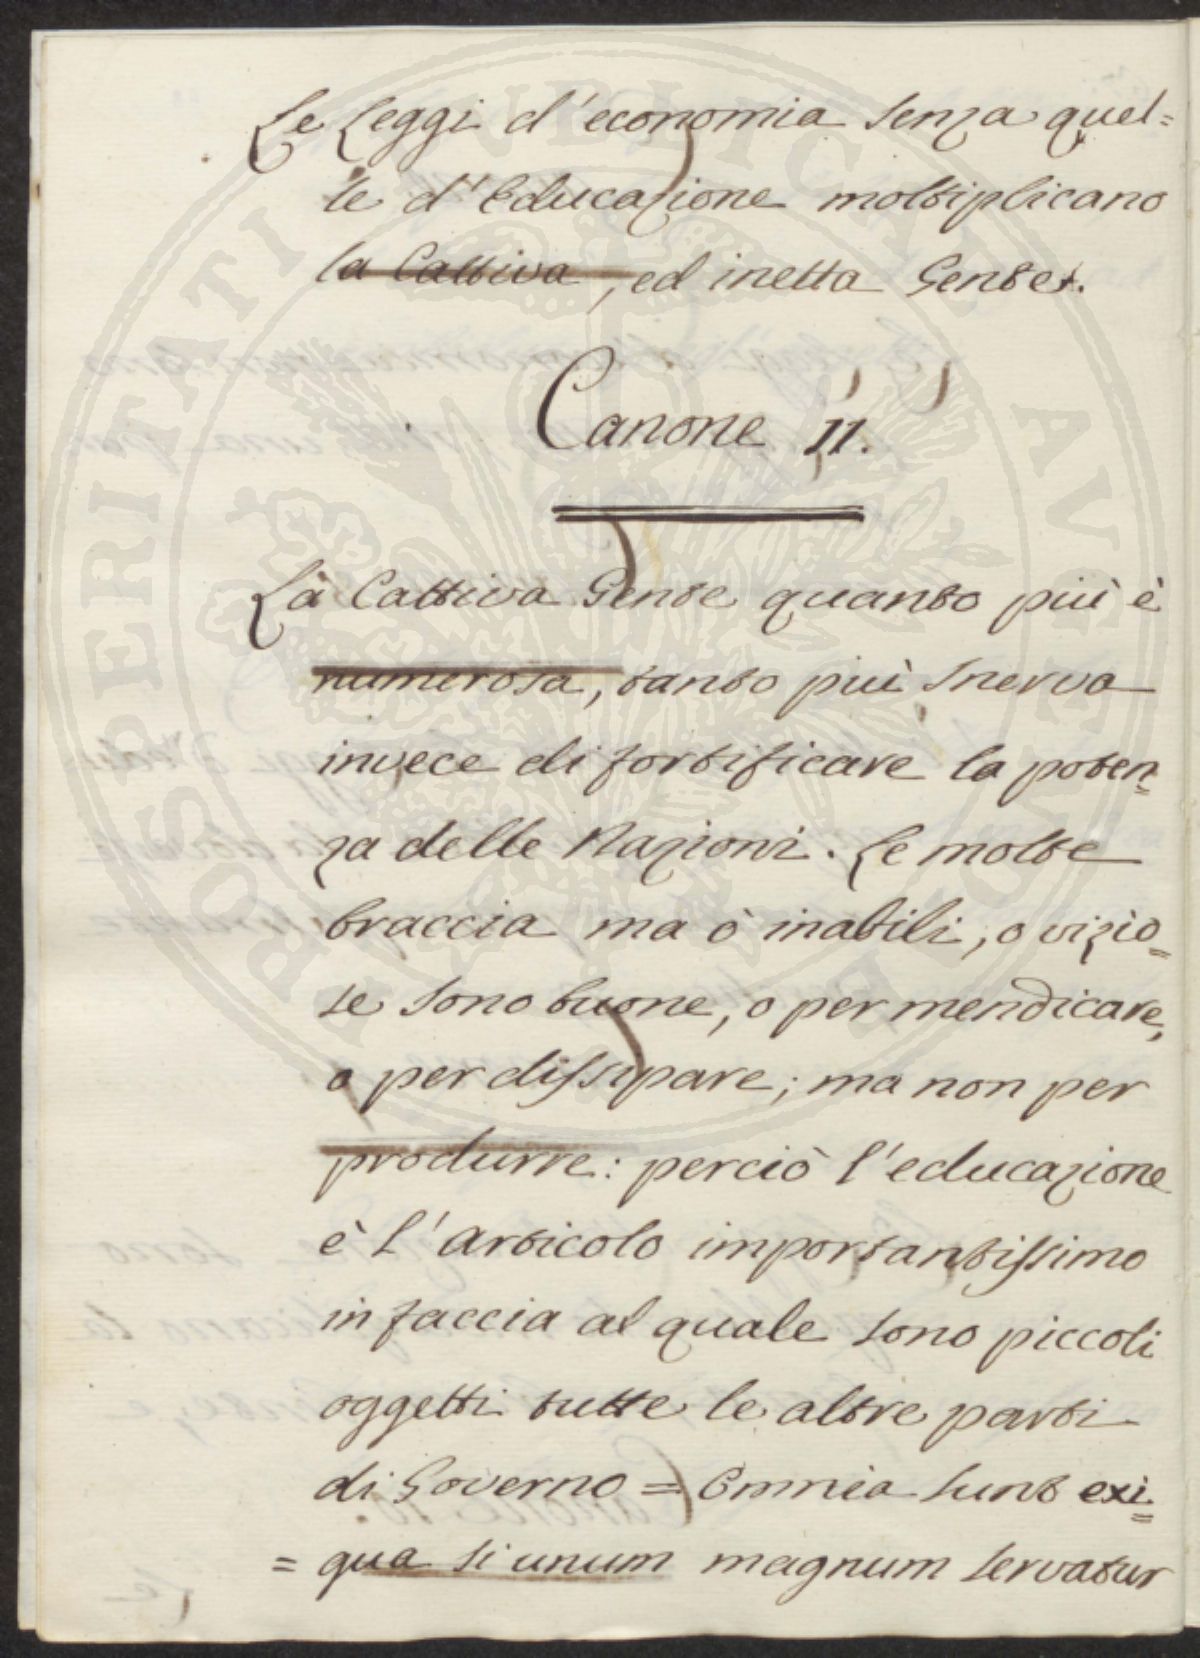 Le Leggi d'economia senza quel=
le d'Educazione moltiplicano
la Cattiva, ed inetta Gente.
Canone 11.
La Cattiva Gente quanto più è
numerosa, tanto più snerva
invece di fortificare la poten=
za delle Nazioni. Le molte
braccia ma ò inabili, o vizio=
se sono buone, o per mendicare,
o per dissipare; ma non per
produrre: perciò l'educazione
è l'Articolo importantissimo
in faccia al quale sono piccoli
oggetti tutte le altre parti
di Governo = Omnia sunt exi=
= qua si unum magnum servatur
PROSPERITATI PUBLICAE AUGENDAE